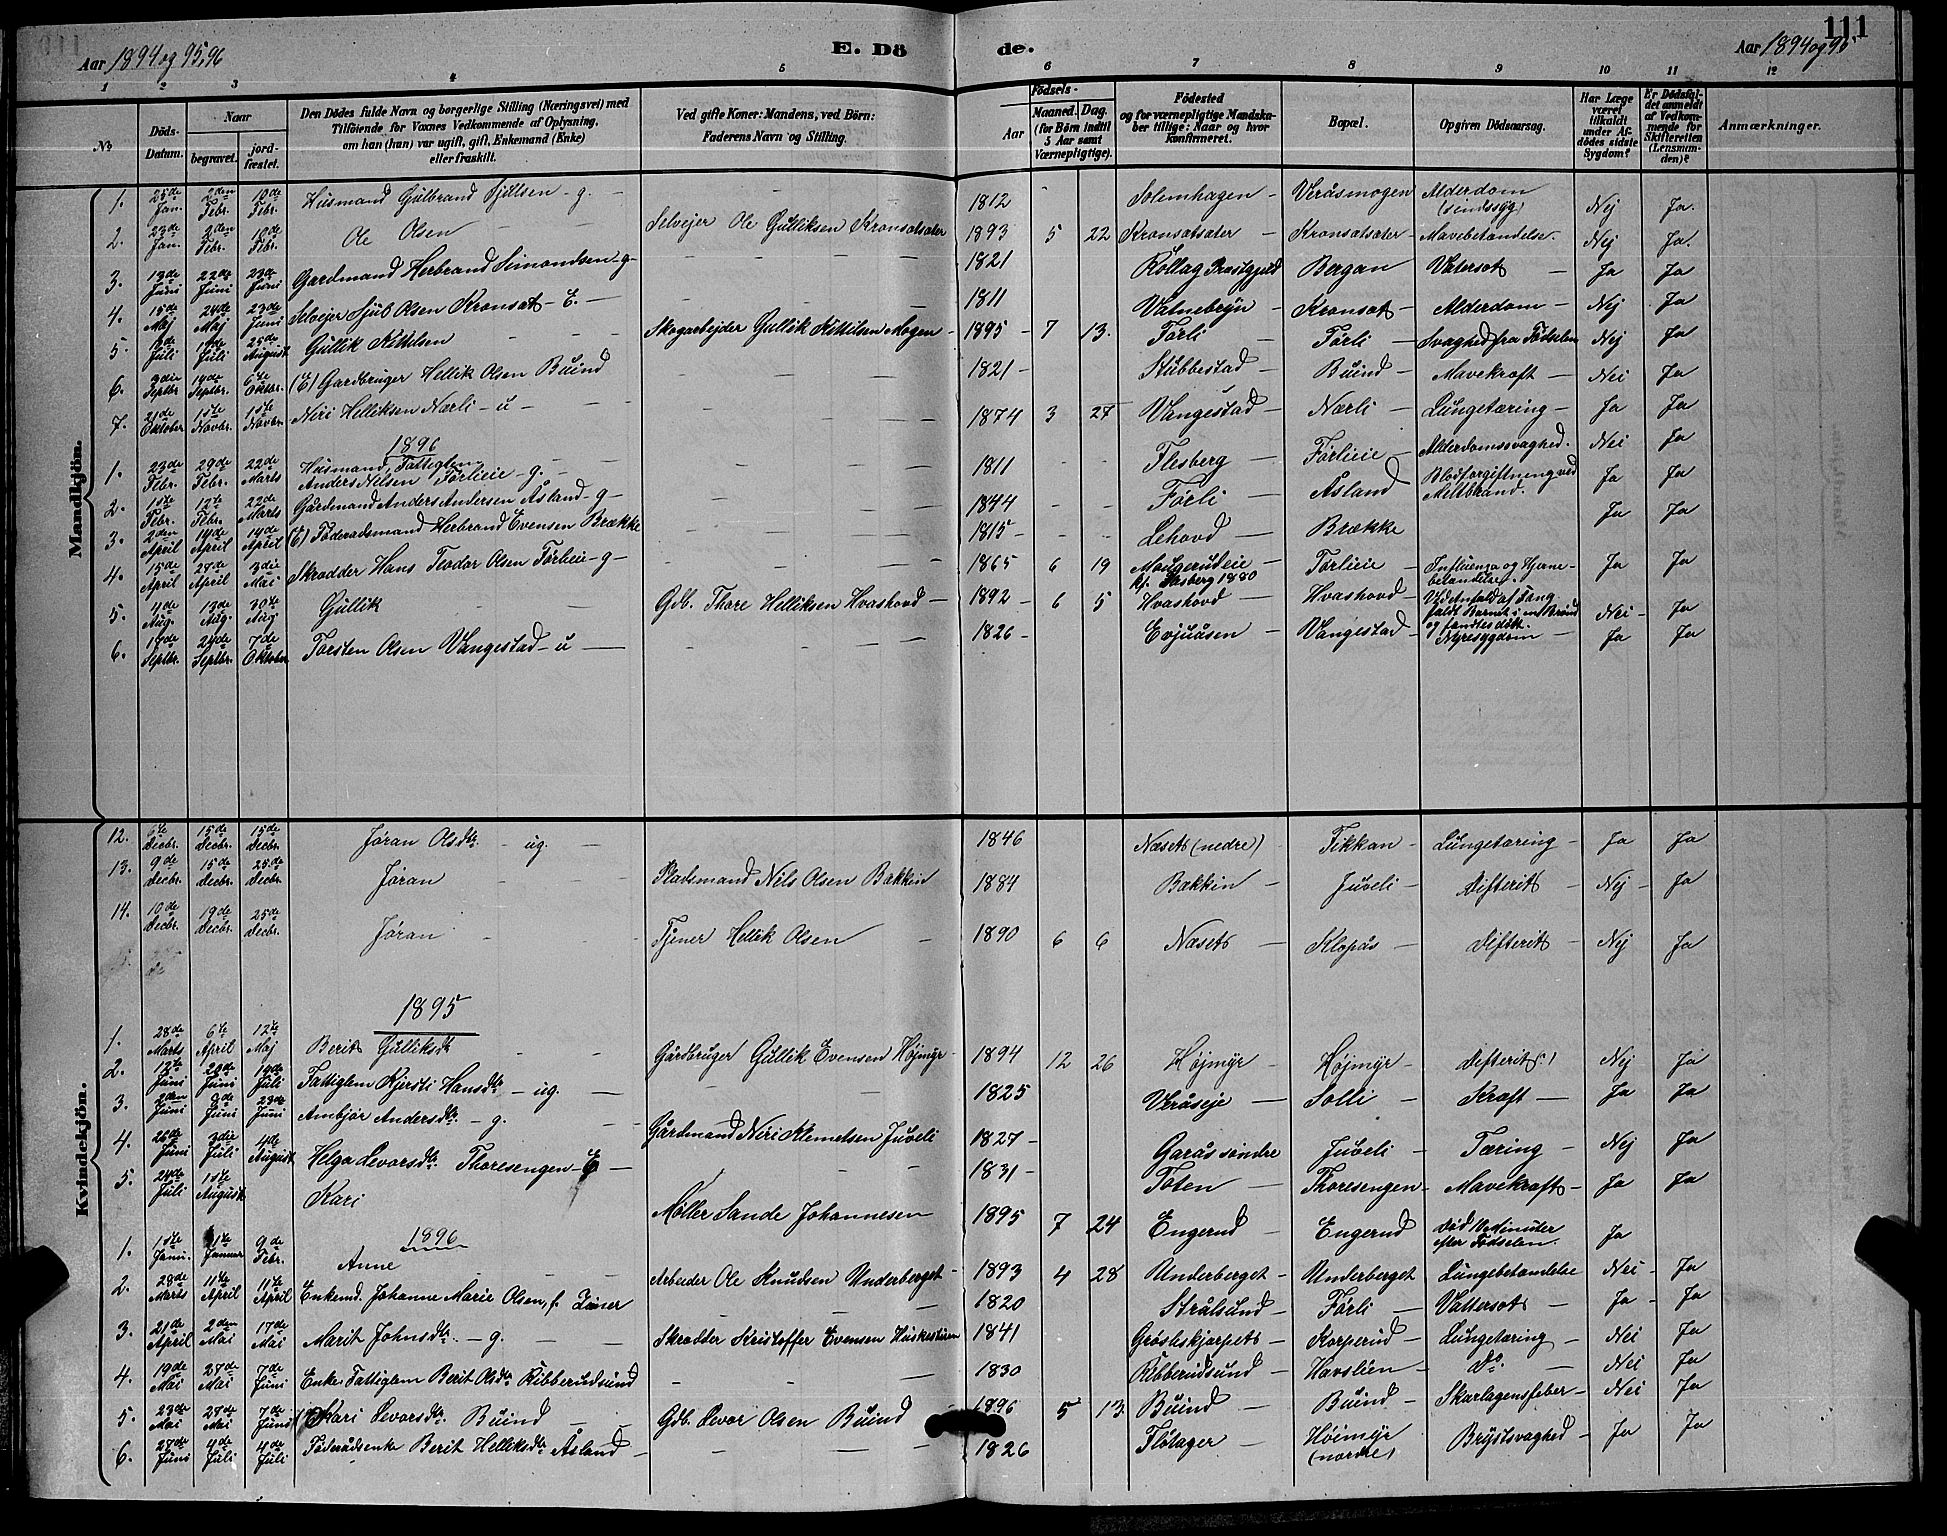 111
Aar 1894 og 95, 96
E. Dö
de.
Aar 1894 og 95
1 2 3 4 5 6 7 8 9 10 11 12
No
Döds-Datum.
Naar begravet. jord-fæstet.
Den Dödes fulde Navn og borgerlige Stilling (Næringsvei) med Tilföiende for Voxnes Vedkommende af Oplysning, om han (hun) var ugift, gift, Enkemand (Enke) eller fraskilt.
Ved gifte Koner: Mandens, ved Börn: Faderens Navn og Stilling.
Födsels-
Aar
Maaned. Dag. (for Börn indtil 5 Aar samt Værnepligtige).
Födested og for værnepligtige Mandskaber tillige: Naar og hvor konfirmeret.
Bopæl.
Opgiven Dödsaarsag.
Har Læge været tilkaldt under Afdödes sidste Sygdom?
Er Dödsfaldet anmeldt af Vedkommende for Skifteretten (Lensmanden)?
Anmærkninger.
Mandkjön.
1. 25de Jan. 2den Febr. 10de Febr. Husmand Gulbrand Kjittilsen - g. - 1812 Solemhagen - Veråsmogen Alderdom (sindssyg) Nej Ja.
2. 23de Jan. 2den Febr. 10de Febr. Ole Olsen - Selvejer Ole Gulliksen Kronsatsater 1893 5 22 Kronsatsater - Kronsatsater - Mavebetændelse. Nej Ja.
3. 13de Juni 22de Juni 23de Juni Gardmand Herbrand Simondsen - g - 1821 Rollag Præstgjeld Bergan Vatersot - Ja Ja
4. 15de Maj 24de Maj 23de Juni Selvejer Sjul Olsen Kronsat - E. - 1811 Vatnebryn - Kronsat - Alderdom - Nej Ja
5. Juli Juli 25de August Gullik Kittilsen - Skogarbejder Gullik Kittilsen Mogen - 1895 7 13. Förli - Förli - Svaghed fra Födselen Nej Ja
6. 3die Septbr. 14de Septbr. 6te Oktbr. (E) Gardbruger Hellik Olsen Buind 1821 - Stubbestad - Buind - Mavekræft - Nei Ja
7. 21de Oktober 1ste Novbr. 1ste Novbr. Niri Helliksen Nærli - u - 1874 3 27 Vangestad - Nærli - Lungetæring - Ja Ja
1896
1. 23de Febr. 29de Febr. 22de Marts Husmand, Fattiglem Anders Nelsen Förlieie - g. - 1811 - - Flesberg - Förlieie - Alderdomssvaghed. Nei Ja
2. 1ste Febr. 12te Febr. 22de Marts Gårdmand Anders Andersen Åsland - g - 1844 - - Förli - Åsland Blodforgiftning ved Miltbrand. Ja Ja
3. 2den April 14de April 19de April (E) Föderadsmand Herbrand Evensen Brække 1815 - Lehovd - Brække Ja Ja
4. 15de April 28de April 3die Mai Skrædder Hans Teodor Olsen Förlieie - g - 1865 6 19 Mougerudeie - kf. Flesberg 1880 Förlieie - Influenza og Hjerne-betændelse. Ja Ja
5. 4de Aug. 13de Aug. 30te Aug Gullik - Gdb. Thore Helliksen Hvashovd - 1892 - 6 5 Hvashovd - Hvashovd - Ved Anfald af faldt Barnet i en Brönd og fandtes död. Nei - Ja
6. Septbr. 24de Septbr. 7de Oktober Torsten Olsen Vangestad - u - 1826 - Evjuåsen - Vangestad - Nyresygdom - Ja Ja
Kvindekjön.
12. 6te Decbr. 15de Decbr. 15de Decbr. Jöran Olsdtr. - ug. - 1846 Næset (nedre) Tekkan - Lungetæring - Ja Ja
13. 9de Decbr. 15de Decbr. 25de Decbr. Jöran - Pladsmand Nils Olsen Bakkin 1884 Bakkin - Juveli - Difterit - Nej - Ja
14. 10de Decbr. 19de Decbr. 25de Decbr. Jöran - Tjener Hellik Olsen - 1890 6 6 Næset - Klopås - Difterit - Nej Ja
1895
1. 28de Marts 6te April 12te Maj Berit Gulliksdtr. - Gårdbruger Gullik Evensen Höjmyr - 1894 12 26 Höjmyr - Höjmyr - Difterit Nej Ja
2. 12te Juni 20de Juni Juli Fattiglem Kjersti Hansdtr. - ug. - 1825 Veråseje - Solli - Kræft - Ja Ja
3. 2den Juni 9de Juni 23de Juni Ambjör Andersdtr. - g. - Gårdmand Niri Klemetsen Juveli 1827 - Garås söndre Juveli - Tæring - Nej Ja
4. 26de Juni 3die Juli 4de August Helga Levorsdtr. Thoresengen - E - 1831 - Toten - Thoresengen - Mavekræft - Ja Ja
5. 24de Juli 1ste August Kari Möller Sande Johannesen 1895 7 24 Engerud - Engerud Död Minuter efter Födselen. Ja
1896
1. 1ste Janu. Januar 9de Febr. Anne - Arbeider Ole Knudsen Underberget - 1893 4 28 Underberget - Underberget Lungebetændelse Nei - Ja
2. 28de Marts 11te April 11te April Enkemd. Johanne Marie Olsen, f. - 1820 Strålsund - Förli - Vattersot - Ja - Ja
3. 21de April 2den Mai 17de Mai Marit Johnsdtr. - g. - Skrædder Kristoffer Evensen 1841 Korperud - Lungetæring - Nei Ja
4. 19de Mai 27de Mai 7de Juni Enke Fattiglem Berit Olsdtr. Ribberudsund - 1830 Ribberudsund - Havslien - Do. - Nei Ja
5. 23de Mai 28de Mai 7de Juni Kari Levorsdtr. Buind - Gdb. Levor Olsen Buind - 1896 5 13. Buind - Buind - Skarlagensfeber - Nei Ja
6. 27de Juni 4de Juli 4de Juli Föderådsenke Berit Helliksdtr. Åsland - 1826 Flötager - Höimyr (nordre) Brystsvaghed - Ja Ja